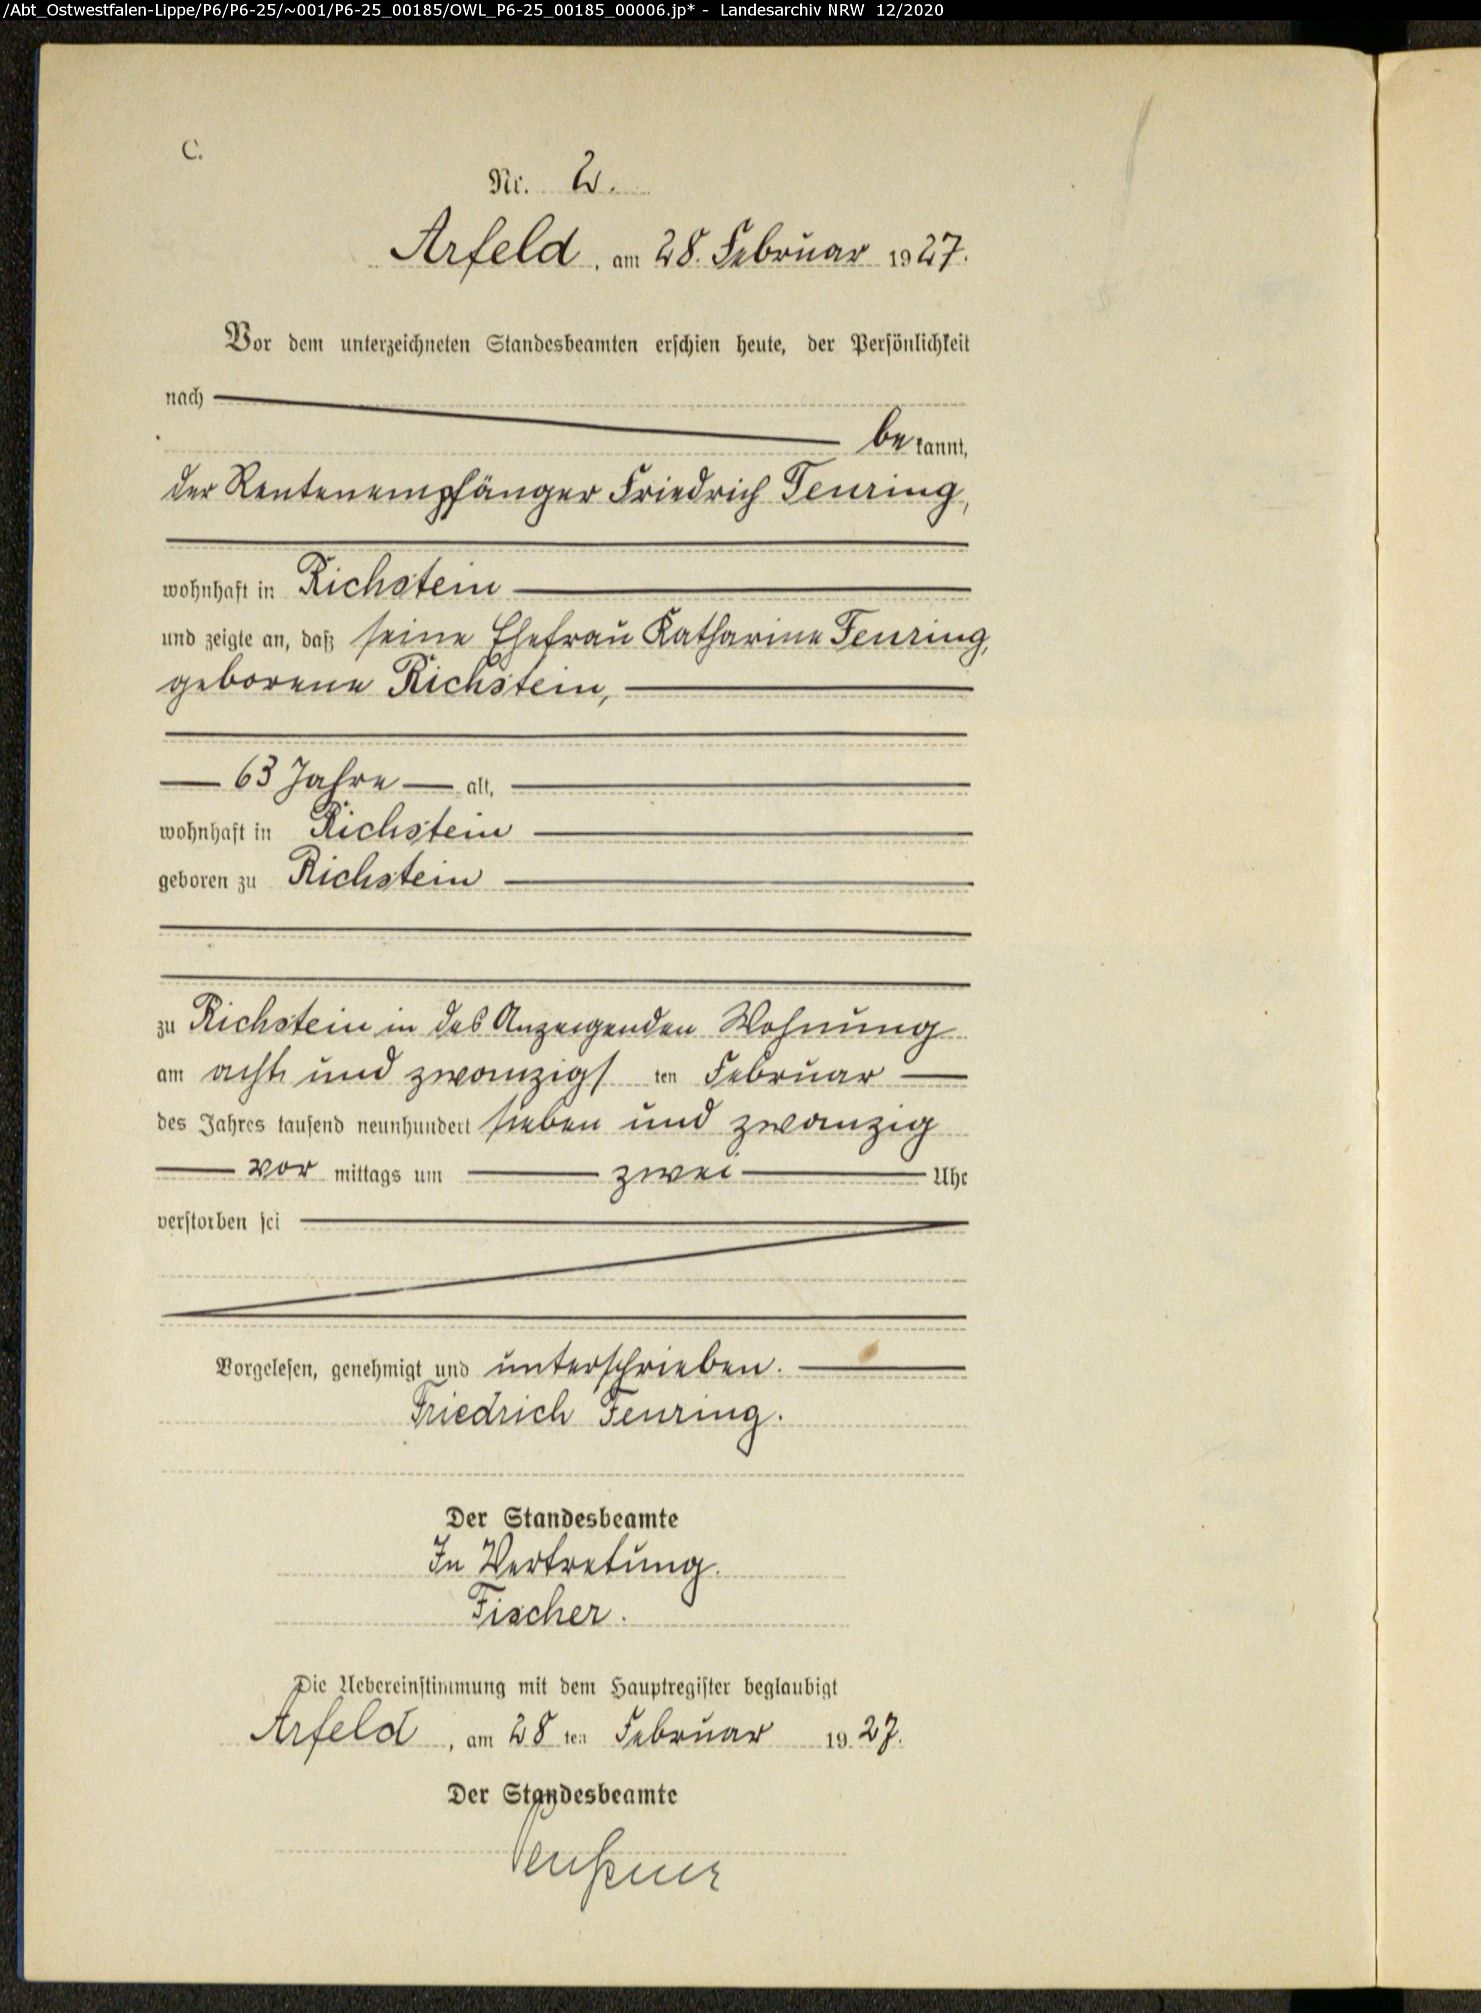 /Abt_Ostwestfalen-Lippe/P6/P6-25/~001/P6-25_00185/OWL_P6-25_00185_00006.jp* - Landesarchiv NRW 12/2020
C.
Nr. 2.
Arfeld, am 28. Februar 1927.
Vor dem unterzeichneten Standesbeamten erschien heute, der Persönlichkeit
nach
be kannt,
der Rentenempfänger Friedrich Feuring,
wohnhaft in Richstein
und zeigte an, daß seine Ehefrau Katharine Feuring,
geborene Richstein,
63 Jahre alt,
wohnhaft in Richstein
geboren zu Richstein
zu Richstein in des Anzeigenden Wohnung
am acht und zwanzigs ten Februar
des Jahres tausend neunhundert sieben und zwanzig
vor mittags um zwei Uhr
verstorben sei
Vorgelesen, genehmigt und unterschrieben.
Friedrich Feuring.
Der Standesbeamte
In Vertretung.
Fischer.
Die Uebereinstimmung mit dem Hauptregister beglaubigt
Arfeld, am 28 ten Februar 1927.
Der Standesbeamte